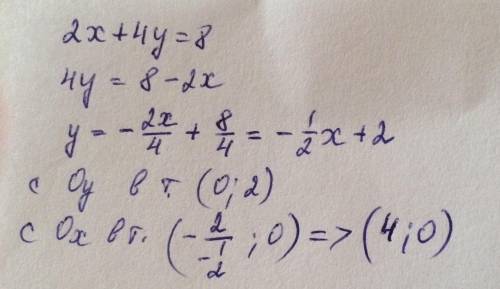 2x+4y=8
4y = 8-2x
y = -2x/4 + 8/4 = -1/2x+2
с Oy в т. (0;2)
с Ox в т. (-2/-1/2 ; 0) => (4;0)